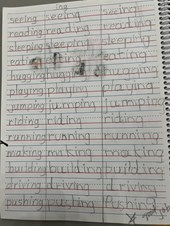 ing
seeing seeing seeing
reading reading reading
sleeping sleeping sleeping
eating eating
hugging hugging hugging
playing playing playing
jumping jumping jumping
riding riding riding
running running running
making making making
building building building
driving driving driving
pushing pushing pushing